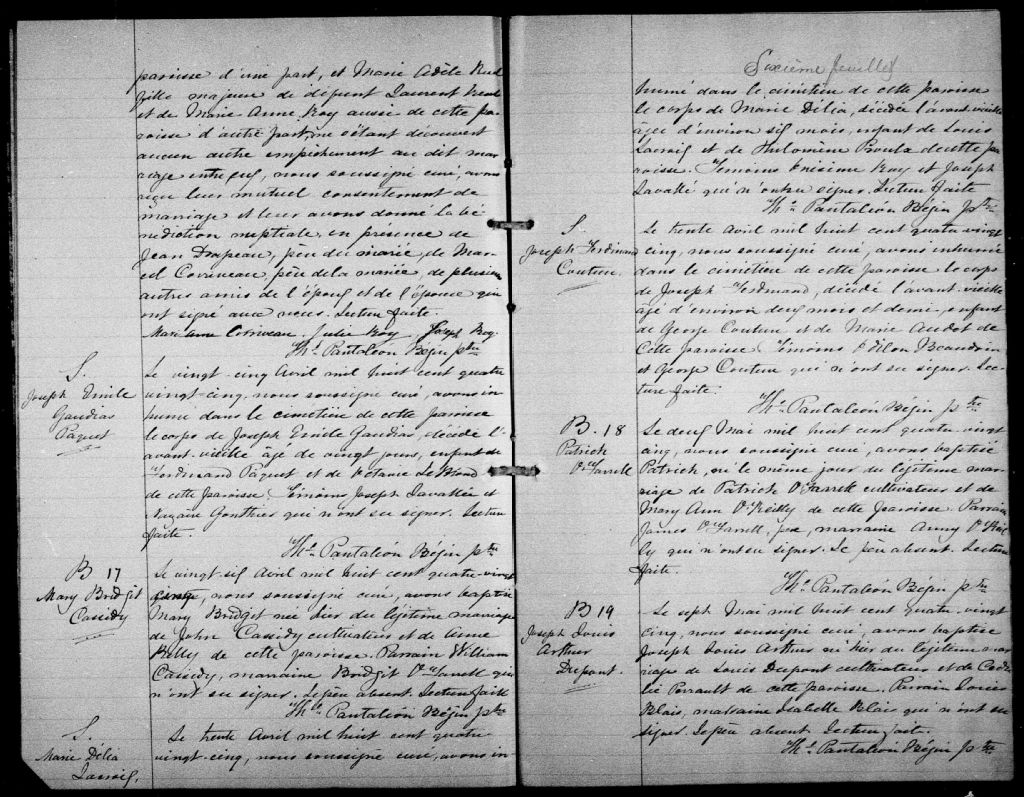 paroisse d'une part, et Marie Adèle
fille majeure de défunt Laurent
et de Marie Anne Roy aussi de cette pa
roisse d'autre part, ne s'étant découvert
aucun autre empêchement au dit ma
riage entre eux, nous soussigné curé, avons
reçu leur mutuel consentement de
mariage et leur avons donné la bé
nédiction nuptiale, en présence de
Jean Drapeau, père du marié, de Mar
cel Corriveau, père de la mariée, de plusieurs
autres amis de l'époux et de l'épouse qui
ont signé avec nous. Lecture faite.
Marianne Corriveau. Julie Roy. Joseph Roy.
Ths Pantaléon Bégin ptre
S.
Joseph Emile
Gaudias
Paquet
Le vingt-cinq Avril mil huit cent quatre
vingt-cinq, nous soussigné curé, avons in
humé dans le cimetière de cette paroisse
le corps de Joseph Emile Gaudias, décédé l'a
vant-veille âgé de vingt jours, enfant de
Ferdinand Paquet et de Victorie LeBlond
de cette paroisse Témoins Joseph Lavallée et
Nazaire Gonthier qui n'ont su signer. Lecture
faite.
Ths Pantaléon Bégin ptre
B 17
Mary Bridget
Cassidy
Le vingt-six Avril mil huit cent quatre-vingt
cinq, nous soussigné curé, avons baptisé
Mary Bridget née hier du légitime mariage
de John Cassidy cultivateur et de Anne
Reilly de cette paroisse. Parrain William
Cassidy, marraine Bridget O'Farrell qui
n'ont su signer. Le père absent. Lecture faite
Ths Pantaléon Bégin ptre
S.
Marie Délia
Lacroix.
Le trente Avril mil huit cent quatre
vingt-cinq, nous soussigné curé, avons in
Sixième feuillet
humé dans le cimetière de cette paroisse
le corps de Marie Délia, décédée l'avant-veille
âgée d'environ six mois, enfant de Louis
Lacroix et de Philomène Proulx de cette pa
roisse. Témoins Onésime Roy et Joseph
Lavallée qui n'ont su signer. Lecture faite
Ths Pantaléon Bégin ptre
S.
Joseph Ferdinand
Couture.
Le trente Avril mil huit cent quatre vingt
cinq, nous soussigné curé, avons inhumé
dans le cimetière de cette paroisse le corps
de Joseph Ferdinand, décédé l'avant-veille
âgé d'environ deux mois et demi, enfant
de George Couture et de Marie Audet de
cette paroisse Témoins Odilon Beaudoin
et George Couture qui n'ont su signer. Lec
ture faite.
Ths Pantaléon Bégin ptre
B. 18
Patrick
O'Farrell
Le deux Mai mil huit cent quatre-vingt
cinq, nous soussigné curé, avons baptisé
Patrick, né le même jour du légitime ma
riage de Patrick O'Farrell cultivateur et de
Mary Ann O'Reilly de cette paroisse. Parrain
James O'Farrell, marraine Anny O'Reil
ly qui n'ont su signer. Le père absent. Lecture
faite.
Ths Pantaléon Bégin ptre
B 19
Joseph Louis
Arthur
Dupont.
Le sept Mai mil huit cent quatre vingt
cinq, nous soussigné curé, avons baptisé
Joseph Louis Arthur né hier du légitime ma
riage de Louis Dupont cultivateur et de
Perrault de cette paroisse. Parrain Louis
Blais, marraine Isabelle Blais qui n'ont su
signer. Le père absent. Lecture faite.
Ths Pantaléon Bégin ptre